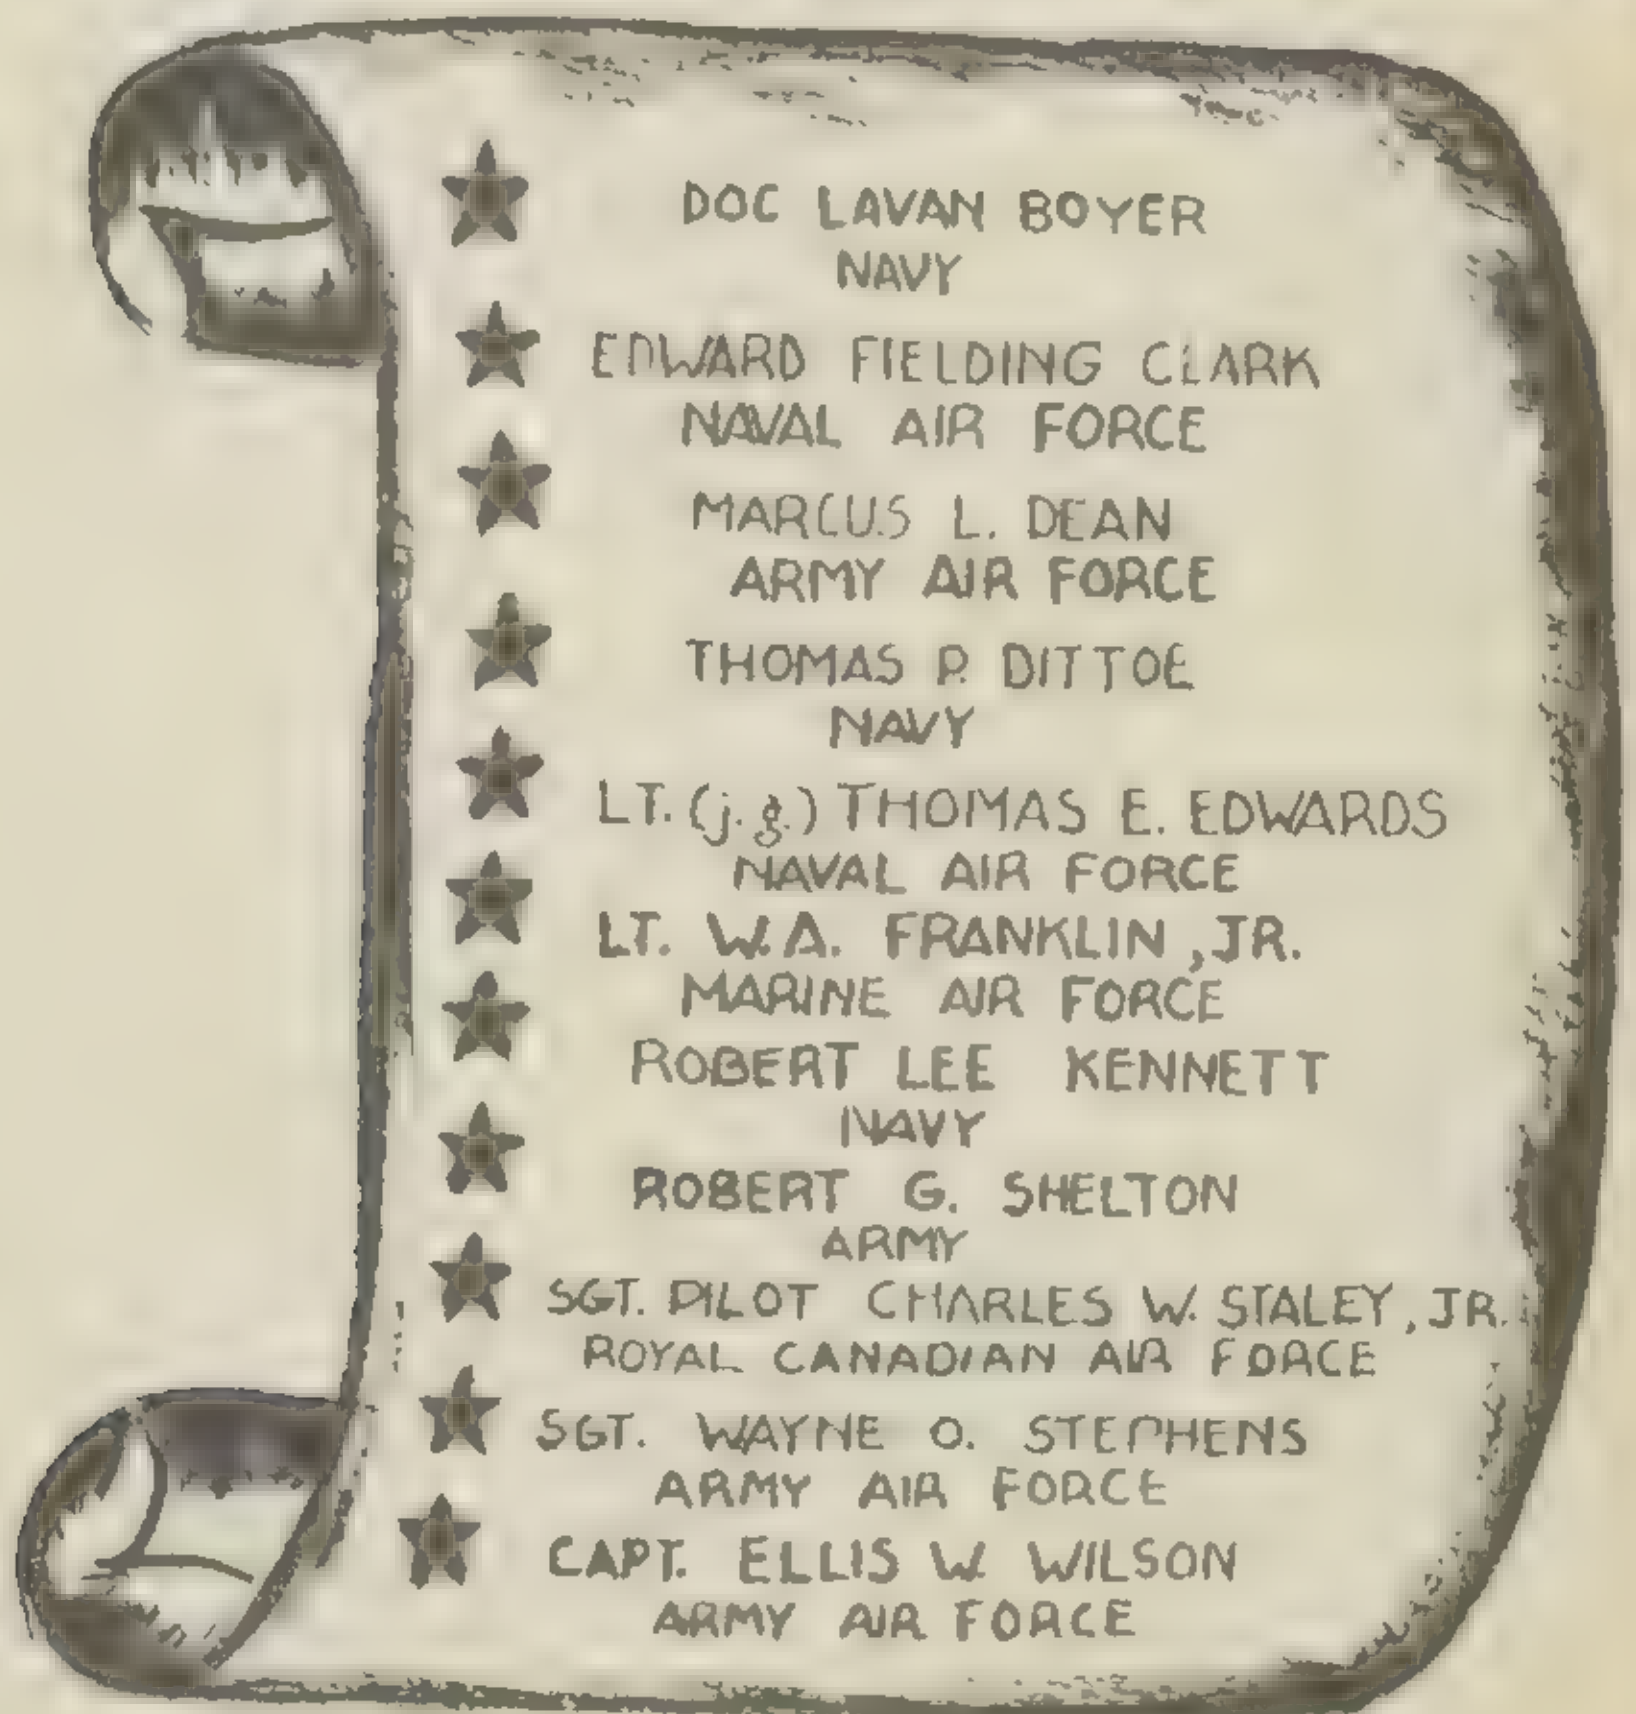 DOC LAVAN BOYER
NAVY
EDWARD FIELDING CLARK
NAVAL AIR FORCE
MARCUS L. DEAN
ARMY AIR FORCE
THOMAS P. DITTOE
NAVY
LT. (j.g.) THOMAS E. EDWARDS
NAVAL AIR FORCE
LT. W.A. FRANKLIN, JR.
MARINE AIR FORCE
ROBERT LEE KENNETT
NAVY
ROBERT G. SHELTON
ARMY
SGT. PILOT CHARLES W. STALEY, JR.
ROYAL CANADIAN AIR FORCE
SGT. WAYNE O. STEPHENS
ARMY AIR FORCE
CAPT. ELLIS W. WILSON
ARMY AIR FORCE